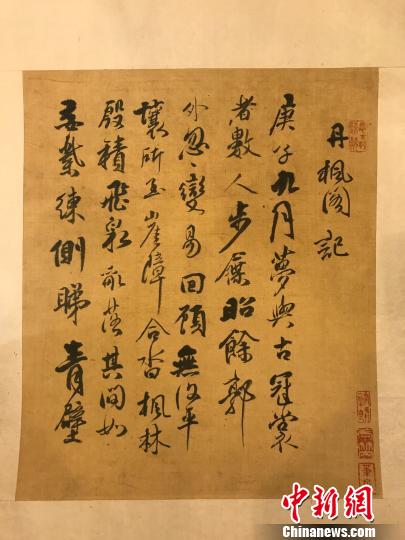 丹楓閣記
庚子九月夢與古冠裳
者數人步屧昭餘郭
外忽〻變易回顧無復平
壤所至崖障合沓楓林
殷積飛泉落其間如
練側睇青壁
中新網
Chinanews.com